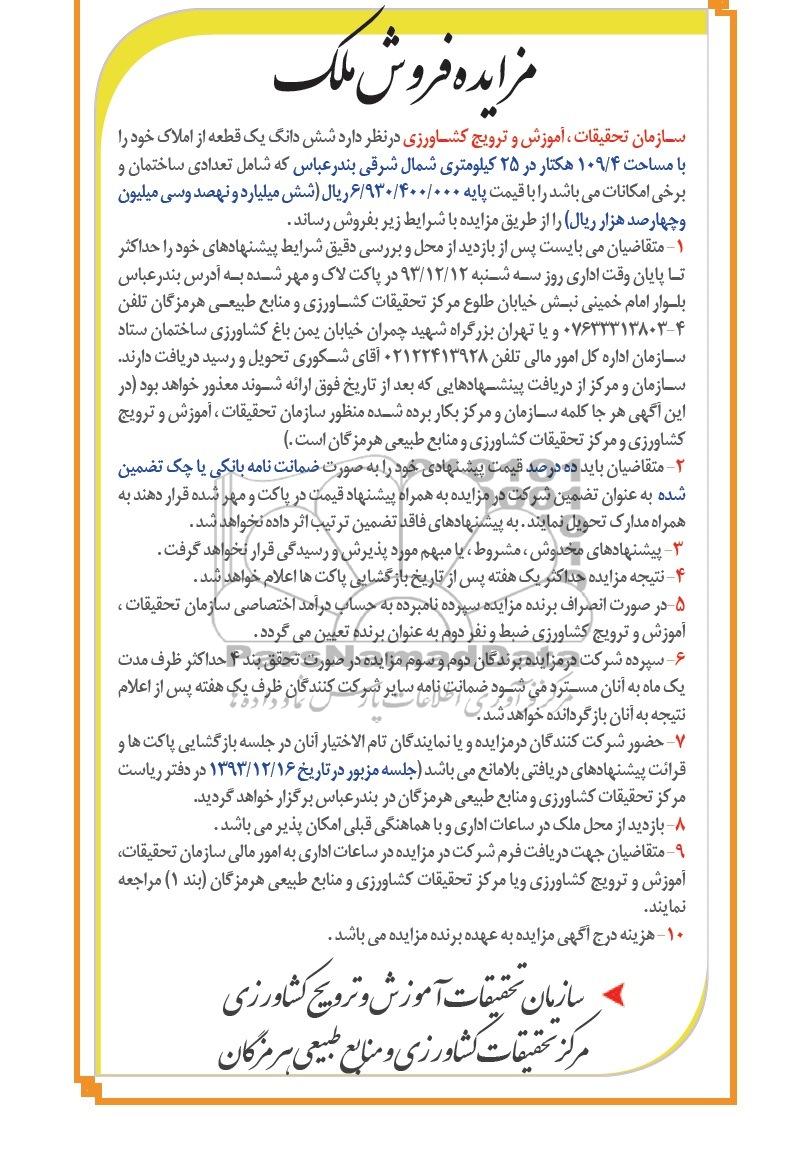 مزایده فروش ملک
سازمان تحقیقات ، آموزش و ترویج کشاورزی درنظر دارد شش دانگ یک قطعه از املاک خود را
با مساحت ۱۰۹/۴ هکتار در ۲۵ کیلومتری شمال شرقی بندرعباس که شامل تعدادی ساختمان و
برخی امکانات می باشد را با قیمت پایه ۶/۹۳۰/۴۰۰/۰۰۰ ریال (شش میلیارد و نهصد وسی میلیون
وچهارصد هزار ریال) را از طریق مزایده با شرایط زیر بفروش رساند .
۱- متقاضیان می بایست پس از بازدید از محل و بررسی دقیق شرایط پیشنهادهای خود را حداکثر
تا پایان وقت اداری روز سه شنبه ۹۳/۱۲/۱۲ در پاکت لاک و مهر شده به آدرس بندرعباس
بلوار امام خمینی نبش خیابان طلوع مرکز تحقیقات کشاورزی و منابع طبیعی هرمزگان تلفن
۰۷۶۳۳۳۱۳۸۰۳-۴ و یا تهران بزرگراه شهید چمران خیابان یمن باغ کشاورزی ساختمان ستاد
سازمان اداره کل امور مالی تلفن ۰۲۱۲۲۴۱۳۹۲۸ آقای شکوری تحویل و رسید دریافت دارند.
سازمان و مرکز از دریافت پینشهادهایی که بعد از تاریخ فوق ارائه شوند معذور خواهد بود (در
این آگهی هر جا کلمه سازمان و مرکز بکار برده شده منظور سازمان تحقیقات ، آموزش و ترویج
کشاورزی و مرکز تحقیقات کشاورزی و منابع طبیعی هرمزگان است .)
۲- متقاضیان باید ده درصد قیمت پیشنهادی خود را به صورت ضمانت نامه بانکی یا چک تضمین
شده به عنوان تضمین شرکت در مزایده به همراه پیشنهاد قیمت در پاکت و مهر شده قرار دهند به
همراه مدارک تحویل نمایند . به پیشنهادهای فاقد تضمین ترتیب اثر داده نخواهد شد .
۳- پیشنهادهای مخدوش ، مشروط ، یا مبهم مورد پذیرش و رسیدگی قرار نخواهد گرفت .
۴- نتیجه مزایده حداکثر یک هفته پس از تاریخ بازگشایی پاکت ها اعلام خواهد شد .
۵-در صورت انصراف برنده مزایده سپرده نامبرده به حساب درآمد اختصاصی سازمان تحقیقات ،
آموزش و ترویج کشاورزی ضبط و نفر دوم به عنوان برنده تعیین می گردد .
ParsNamadData
۶- سپرده شرکت درمزایده برندگان دوم و سوم مزایده در صورت تحقق بند ۴ حداکثر ظرف مدت
یک ماه به آنان مسترد می شود ضمانت نامه سایر شرکت کنندگان ظرف یک هفته پس از اعلام
نتیجه به آنان بازگردانده خواهد شد .
۷- حضور شرکت کنندگان درمزایده و یا نمایندگان تام الاختیار آنان در جلسه بازگشایی پاکت ها و
قرائت پیشنهادهای دریافتی بلامانع می باشد (جلسه مزبور درتاریخ ۱۳۹۳/۱۲/۱۶ در دفتر ریاست
مرکز تحقیقات کشاورزی و منابع طبیعی هرمزگان در بندرعباس برگزار خواهد گردید.
۸- بازدید از محل ملک در ساعات اداری و با هماهنگی قبلی امکان پذیر می باشد .
۹- متقاضیان جهت دریافت فرم شرکت در مزایده در ساعات اداری به امور مالی سازمان تحقیقات،
آموزش و ترویج کشاورزی ویا مرکز تحقیقات کشاورزی و منابع طبیعی هرمزگان (بند ۱) مراجعه
نمایند.
۱۰- هزینه درج آگهی مزایده به عهده برنده مزایده می باشد .
سازمان تحقیقات آموزش و ترویج کشاورزی
مرکز تحقیقات کشاورزی و منابع طبیعی هرمزگان